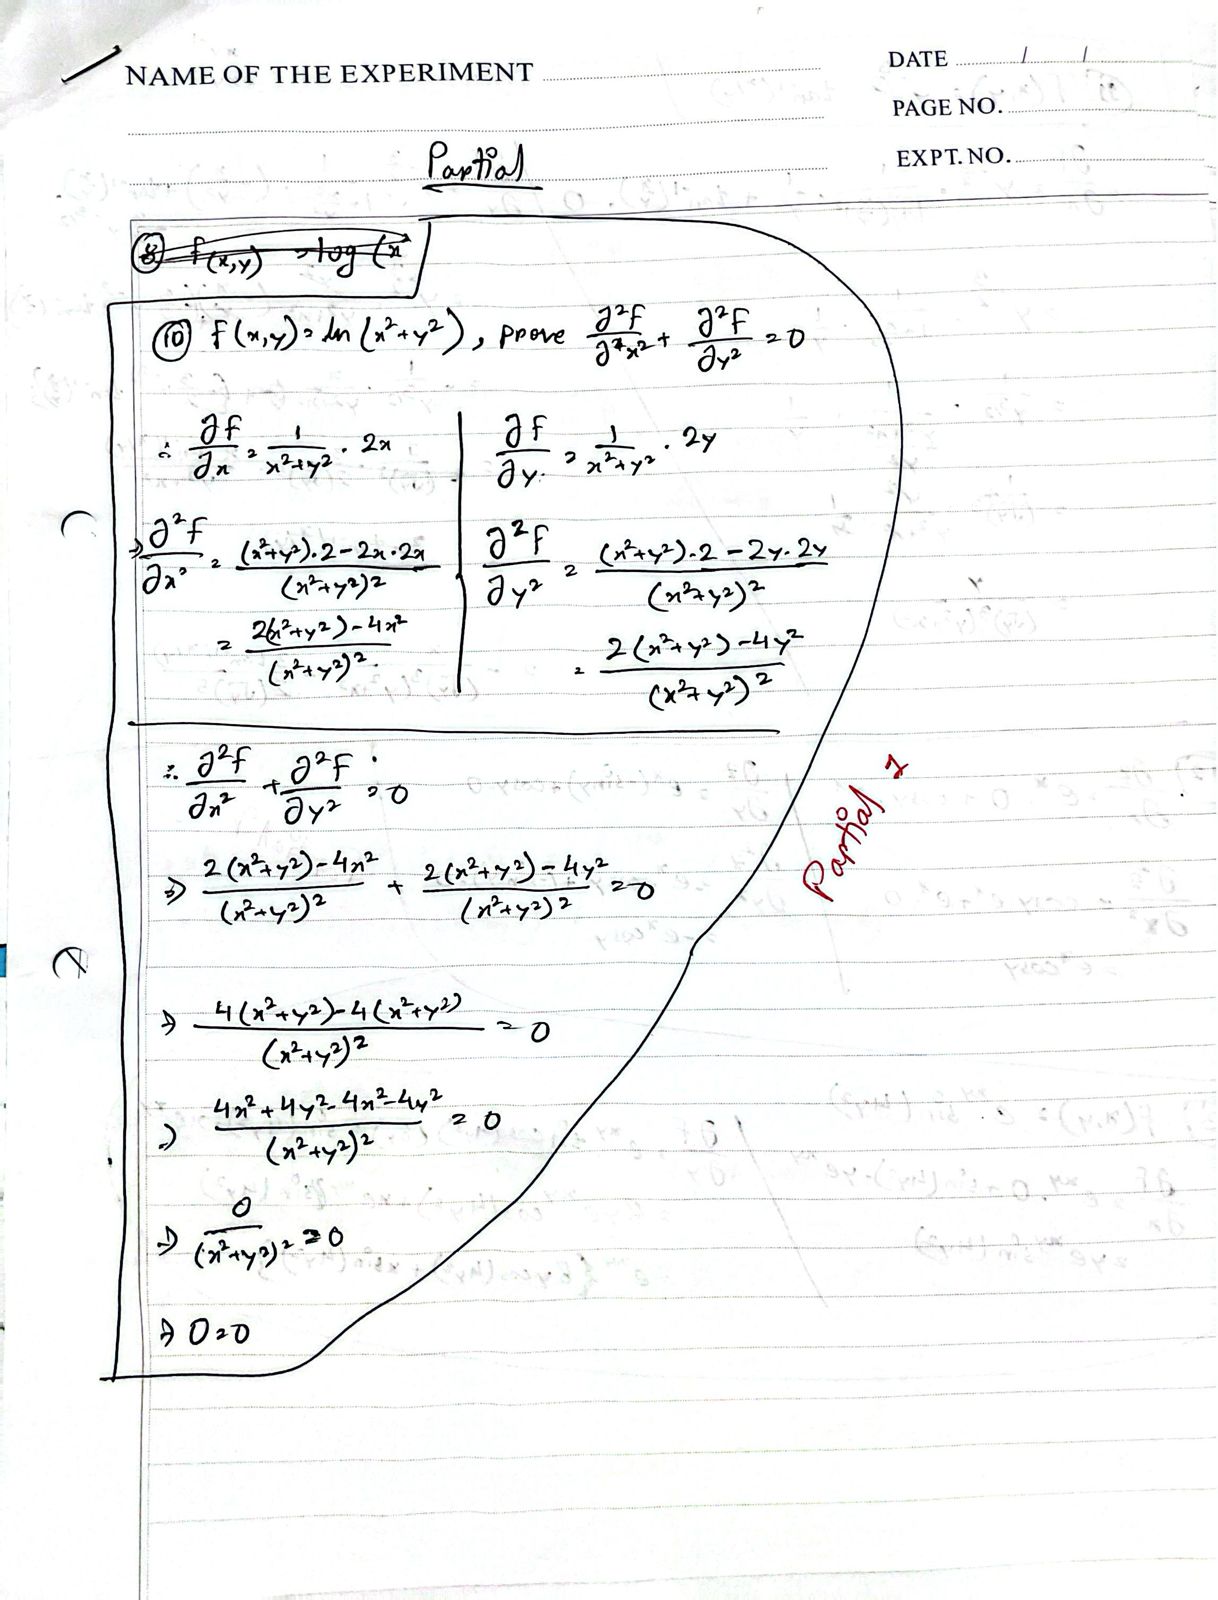 NAME OF THE EXPERIMENT
DATE / /
PAGE NO.
EXPT. NO.
Partial
⑧ f(x,y) = log (x
⑩ f(x,y) = ln (x²+y²), prove ∂²f/∂x² + ∂²f/∂y² = 0
∴ ∂f/∂x = 1/(x²+y²) · 2x
⇒ ∂²f/∂x² = ((x²+y²)·2 - 2x·2x)/(x²+y²)²
= (2(x²+y²) - 4x²)/(x²+y²)²
∂f/∂y = 1/(x²+y²) · 2y
∂²f/∂y² = ((x²+y²)·2 - 2y·2y)/(x²+y²)²
= (2(x²+y²) - 4y²)/(x²+y²)²
∴ ∂²f/∂x² + ∂²f/∂y² = 0
⇒ (2(x²+y²) - 4x²)/(x²+y²)² + (2(x²+y²) - 4y²)/(x²+y²)² = 0
⇒ (4(x²+y²) - 4(x²+y²))/(x²+y²)² = 0
⇒ (4x²+4y²-4x²-4y²)/(x²+y²)² = 0
⇒ 0/(x²+y²)² = 0
⇒ 0=0
Partial 1